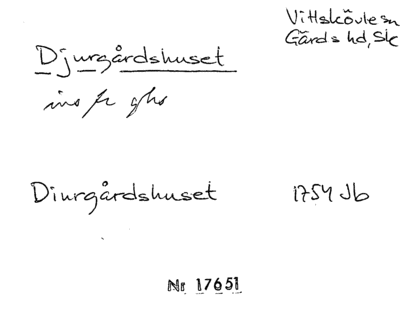 Vittskövle sn
Gärds hd, Sk
Djurgårdshuset
ins fr ghs
Diurgårdshuset 1754 Jb
Nr 17651